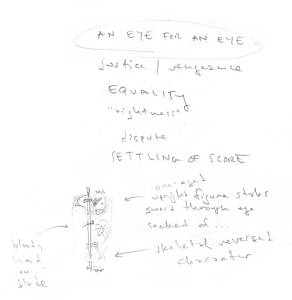 AN EYE FOR AN EYE
justice / vengeance
EQUALITY
"rightness"
dispute
SETTLING OF SCORE
one-eyed
upright figure stabs
sword through eye
socket of...
skeletal reversed
character
bloody
hand
on
blade